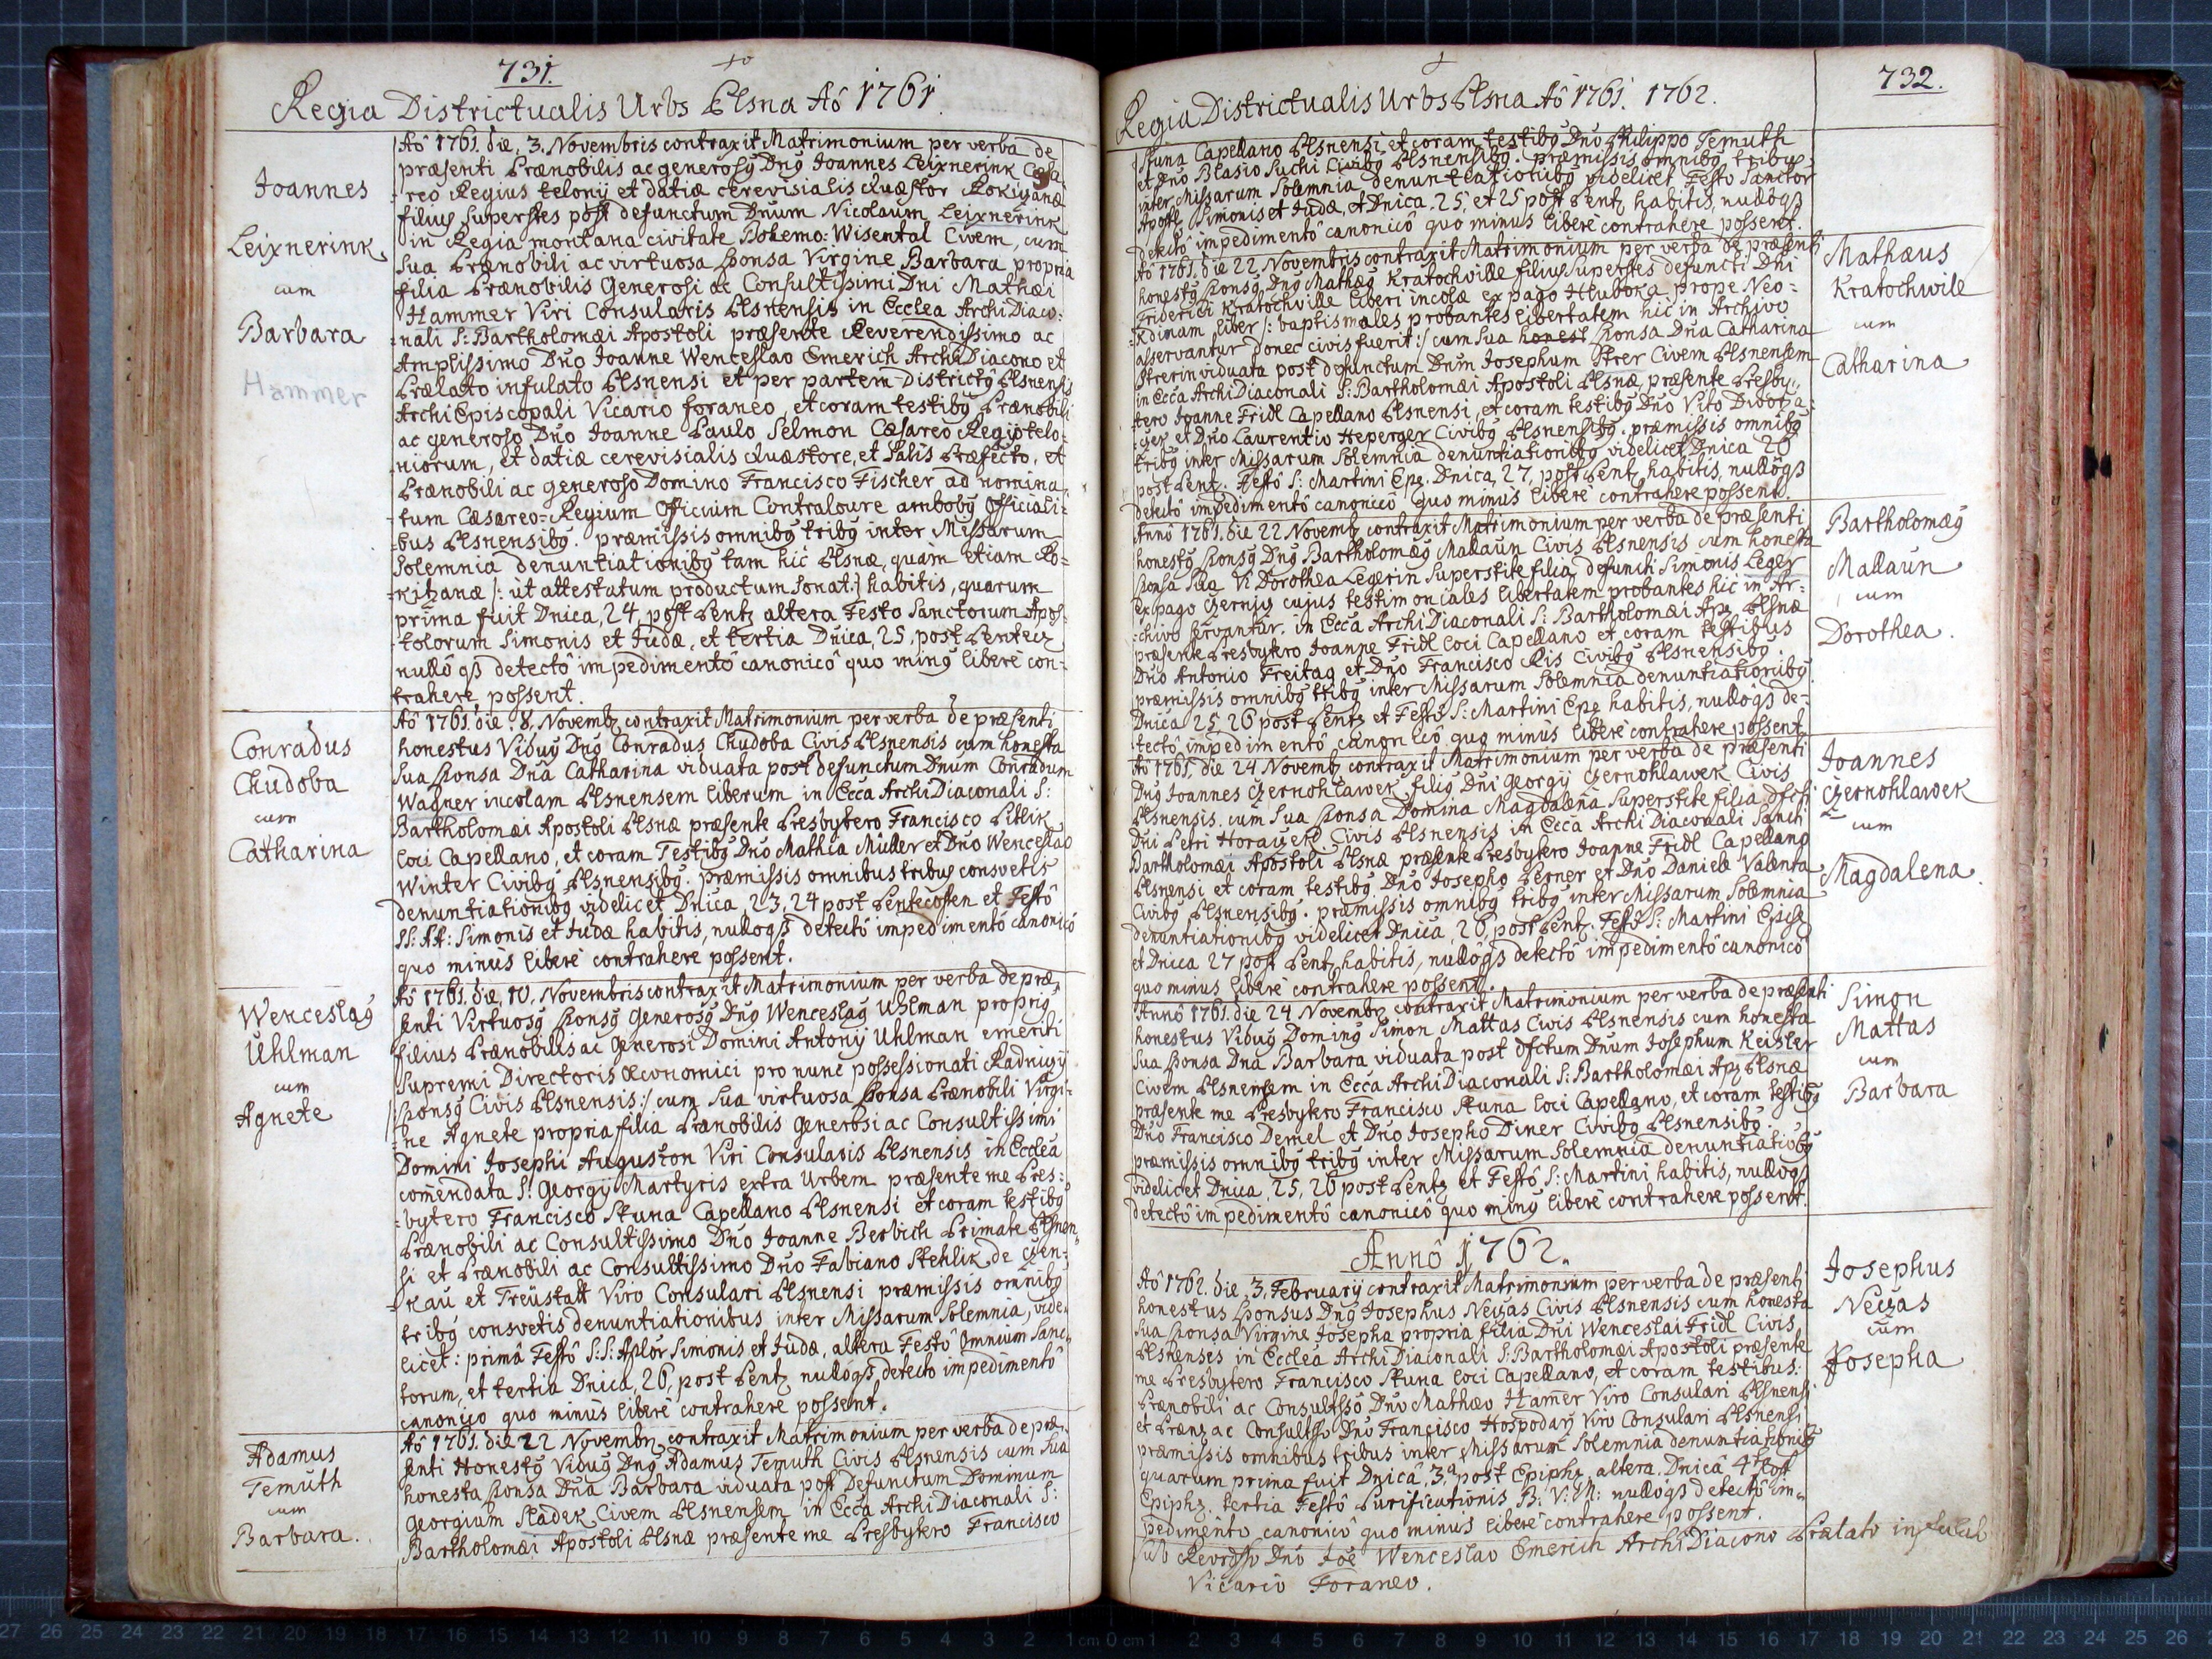 731.
Regia Districtualis Urbs Plsna Aô 1761.
Joannes
Leixnerink
cum
Barbara
Hammer
Aô 1761. die, 3. Novembris contraxit Matrimonium per verba de
præsenti Prænobilis ac generosq Dnq Joannes Leixnerink Cæsa
reo Regius telonij et datiæ cerevisialis Quæstor Rokizanæ
filius superstes post defunctum Dnum Nicolaum Leixnerink
in Regia montana civitate Bohemo: Wisental Civem, cum
sua Prænobili ac virtuosa sponsa Virgine Barbara propria
filia Prænobilis Generosi ac Consultissimi Dni Mathæi
Hammer Viri Consularis Plsnensis in Ecclea ArchiDiaco:
nali S: Bartholomæi Apostoli præsente Reverendissimo ac
Amplissimo Dno Joanne Wenceslao Emerich ArchiDiacono et
Prælato infulato Plsnensi et per partem Districtq Plsnensis
ArchiEpiscopali Vicario foraneo, et coram testibq Prænobili
ac generoso Dno Joanne Paulo Selmon Cæsareo Regio telo:
niorum, et datiæ cerevisialis Quæstore, et Salis Præfecto, et
Prænobili ac generoso Domino Francisco Fischer ad nomina:
tum Cæsareo=Regium Officium Contraloure ambobq Officiali:
bus Plsnensibq. præmissis omnibq tribq inter Missarum
Solemnia denuntiationibq tam hic Plsnæ, quam etiam Ro:
kizanæ /: ut attestatum productum sonat:/ habitis, quarum
prima fuit Dnica, 24, post Pentz altera Festo Sanctorum Apos:
tolorum Simonis et Judæ, et tertia Dnica, 25, post Pentecz
nullôqß detectô impedimentô canonicô quo minq liberè con:
trahere possent.
Conradus
Chudoba
cum
Catharina
Aô 1761. die. 8. Novembz contraxit Matrimonium per verba de præsenti
honestus Viduq Dnq Conradus Chudoba Civis Plsnensis cum honesta
sua sponsa Dnâ Catharina viduata post defunctum Dnum Conradum
Wagner incolam Plsnensem liberum in Ecca ArchiDiaconali S:
Bartholomæi Apostoli Plsnæ præsente Presbytero Francisco Pitlik
loci Capellano, et coram Testibq Dno Mathia Müller et Dno Wenceslao
Winter Civibq Plsnensibq. præmissis omnibus tribus consvetis
denuntiationibq videlicet Dnica, 23, 24 post Pentecosten et Festô
SS: AA: Simonis et Judæ habitis, nullôqß detectô impedimentô canonicô
quo minus liberè contrahere possent.
Wenceslaq
Uhlman
cum
Agnete
Aô 1761. die, 10. Novembris contraxit Matrimonium per verba de præ,
senti Virtuosq sponsq Generosq Dnq Wenceslaq Uhlman propriq
filius Prænobilis ac Generosi Domini Antonij Uhlman emeriti
Supremi Directoris Œconomici pro nunc possessionati Radnicij
/sponsq Civis Plsnensis:/ cum sua virtuosa sponsa Prænobili Virgi:
ne Agnete propria filia Prænobilis Generosi ac Consultissimi
Domini Josephi Auguston Viri Consularis Plsnensis in Ecclea
comendata S: Georgij Martyris extra Urbem præsente me Pres:
bytero Francisco Skuna Capellano Plsnensi et coram testibq
Prænobili ac Consultissimo Dno Joanne Berbich Primate Plsnen
si et Prænobili ac Consultissimo Dno Fabiano Stehlik de Czen:
kau et Treüstatt Viro Consulari Plsnensi præmissis omnibq
tribq consvetis denuntiationibus inter Missarum Solemnia, vide,
licet: primâ Festô S:S: Aplor Simonis et Judæ, altera Festô Omnium Sanc:
torum, et tertia Dnica, 26, post Pentz nullôqß detecto impedimentô
canonico quo minùs liberè contrahere possent.
Adamus
Temuth
cum
Barbara.
Aô 1761. die 22 Novembz contraxit Matrimonium per verba de præ,
senti Honestq Viduq Dnq Adamus Temuth Civis Plsnensis cum sua
honesta sponsa Dna Barbara viduata post Defunctum Dominum
Georgium Sladek Civem Plsnensem in Ecca ArchiDiaconali S:
Bartholomæi Apostoli Plsnæ præsente me Presbytero Francisco
732.
Regia Districtualis Urbs Plsna Aô 1761. 1762.
Skuna Capellano Plsnensi et coram testibq Dno Philippo Temuth
et Dno Blasio Suchi Civibq Plsnensibq. præmissis omnibq tribus
inter Missarum Solemnia denuntiationibq videlicet Festo Sanctor
Apostl Simonis et Judæ, et Dnica, 25, et 25 post Pentz habitis, nullôqß
detectô impedimentô canonicô quo minus liberè contrahere possent.
Mathæus
Kratochwile
cum
Catharina
Aô 1761. die 22 Novembris contraxit Matrimonium per verba de præsenti
honestq sponsq Dnq Mathæq Kratochville filius superstes defuncti Dni
Friderici Kratochville liberi incolæ ex pago Hluboka prope Neo:
Rdinam liber /: baptismales probantes libertatem hic in Archivo
asservantur donec civis fuerit:/ cum sua honest sponsa Dna Catharina
Strerin viduata post defunctum Dnum Josephum Strer Civem Plsnensem
in Ecca ArchiDiaconali S: Bartholomæi Apostoli Plsnæ, præsente Presby:
tero Joanne Fridl Capellano Plsnensi, et coram testibq Dno Vito
et Dno Laurentio Heperger Civibq Plsnensibq. præmissis omnibq
tribq inter Missarum Solemnia denuntiationibq videlicet Dnica 26
post Pentz. Festô S: Martini Epz. Dnica, 27, post Pentz habitis, nullôqß
detectô impedimentô canonicô quo minus liberè contrahere possent.
Bartholomæq
Mallaun
cum
Dorothea.
Annô 1761. die 22 Novembz contraxit Matrimonium per verba de præsenti
honestq sponsq Dnq Bartholomæq Mallaun Civis Plsnensis cum honesta
sponsa sua Vi Dorothea Legerin superstite filia defuncti Simonis Leger
ex pago Czernjz cujus testimonciales libertatem probantes hic in Ar:
chivo servantur. in Ecca ArchiDiaconali S: Bartholomæi Apz Plsnæ
præsente Presbytero Joanne Fridl loci Capellano et coram testibus
Dno Antonio Freitag et Dno Francisco Ris Civibq Plsnensibq.
præmissis omnibq tribq inter Missarum Solemnia denuntiationibq
Dnica 25, 26 post Pentz et Festô S: Martini Epz habitis, nullôqß de:
tectô impedimentô canonicô quo minùs liberè contrahere possent.
Joannes
Czernohlawek
cum
Magdalena.
Aô 1761. die 24 Novembz contraxit Matrimonium per verba de præsenti
Dnq Joannes Czernohlawek filiq Dni Georgij Czernohlawek Civis
Plsnensis. cum sua sponsa Domina Magdalena superstite filia dfcti
Dni Petri Horawek Civis Plsnensis in Ecca ArchiDiaconali Sancti
Bartholomæi Apostoli Plsnæ præsente Presbytero Joanne Fridl Capellano
Plsnensi et coram testibq Dno Josepho Perner et Dno Daniele Valenta
Civibq Plsnensibq. præmissis omnibq tribq inter Missarum Solemnia
denuntiationibq videlicet Dnica, 26, post Pentz. Festô S: Martini Episc
et Dnica 27 post Pentz habitis, nullôqß detectô impedimentô canonicô
quo minus liberè contrahere possent.
Simon
Mattas
cum
Barbara
Annô 1761. die 24 Novembz contraxit Matrimonium per verba de præsenti
honestus Viduq Dominq Simon Mattas Civis Plsnensis cum honesta
sua sponsa Dna Barbara viduata post dfctum Dnum Josephum Keisler
Civem Plsnensem in Ecca ArchiDiaconali S: Bartholomæi Apz Plsnæ
præsente me Presbytero Francisco Skuna loci Capellano, et coram testibq
Dno Francisco Demel et Dno Josepho Diner Civibq Plsnensibq.
præmissis omnibq tribq inter Missarum Solemnia denuntiatiobq
videlicet Dnica, 25, 26 post Pentz et Festô S: Martini habitis, nullôqß
detectô impedimentô canonicô quo minq liberè contrahere possent.
Annô 1762.
Josephus
Neczas
cum
Josepha
Aô 1762. die, 3. February contraxit Matrimonium per verba de præsenti
honestus sponsus Dnq Josephus Neczas Civis Plsnensis cum honesta
sua sponsa Virgine Josepha propria filia Dni Wenceslai Fridl Civis
Plsnenses in Ecclea ArchiDiaconali S: Bartholomæi Apostoli præsente
me Presbytero Francisco Skuna loci Capellano, et coram testibus:
Prænobili ac Consultsso Dno Mathæo Hamer Viro Consulari Plsnensi
et Prænz ac Consultsso Dno Francisco Hospodarz Viro Consulari Plsnensi
præmissis omnibus tribus inter Missarum Solemnia denuntiationibq
quarum prima fuit Dnicâ, 3.ª post Epiphz, altera. Dnicâ 4ta post
Epiphz. tertia Festô Purificationis B: V: M: nullôqß detectô im:
pedimento canonicô quo minus liberè contrahere possent.
sub Revdsso Dno Joe Wenceslao Emerich ArchiDiacono Prælato infulato
Vicario Foraneo.